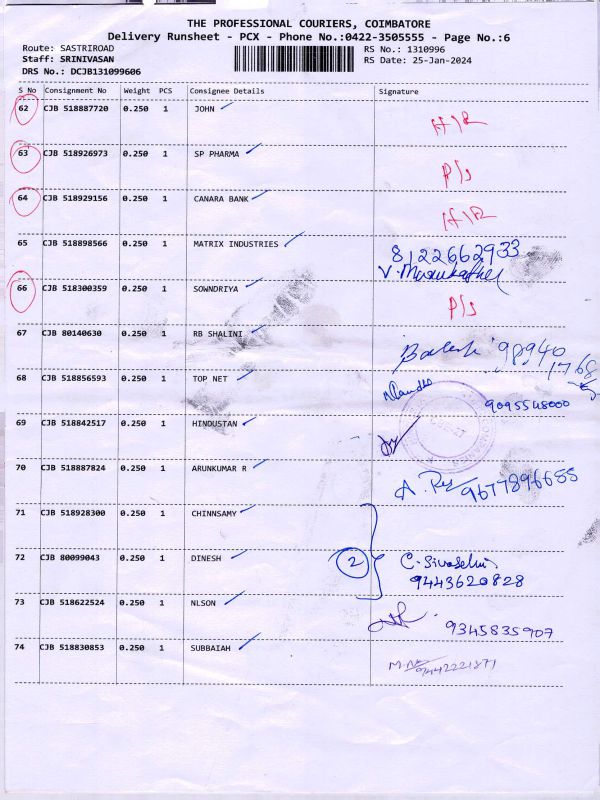 THE PROFESSIONAL COURIERS, COIMBATORE
Delivery Runsheet - PCX - Phone No.:0422-3505555 - Page No.:6
Route: SASTRIROAD RS No.: 1310996
Staff: SRINIVASAN RS Date: 25-Jan-2024
DRS No.: DCJB131099606
S No Consignment No Weight PCS Consignee Details Signature
62 CJB 518887720 0.250 1 JOHN H/R
63 CJB 518926973 0.250 1 SP PHARMA P/s
64 CJB 518929156 0.250 1 CANARA BANK H/R
65 CJB 518898566 0.250 1 MATRIX INDUSTRIES 8122662933
V.
66 CJB 518300359 0.250 1 SOWNDRIYA P/s
67 CJB 80140630 0.250 1 RB SHALINI 98940
1768
68 CJB 518856593 0.250 1 TOP NET 9095548000
69 CJB 518842517 0.250 1 HINDUSTAN
70 CJB 518887824 0.250 1 ARUNKUMAR R A. 9677896688
71 CJB 518928300 0.250 1 CHINNSAMY
72 CJB 80099043 0.250 1 DINESH 2 C.
9443620828
73 CJB 518622524 0.250 1 NLSON 9345835907
74 CJB 518830853 0.250 1 SUBBAIAH 9442221871